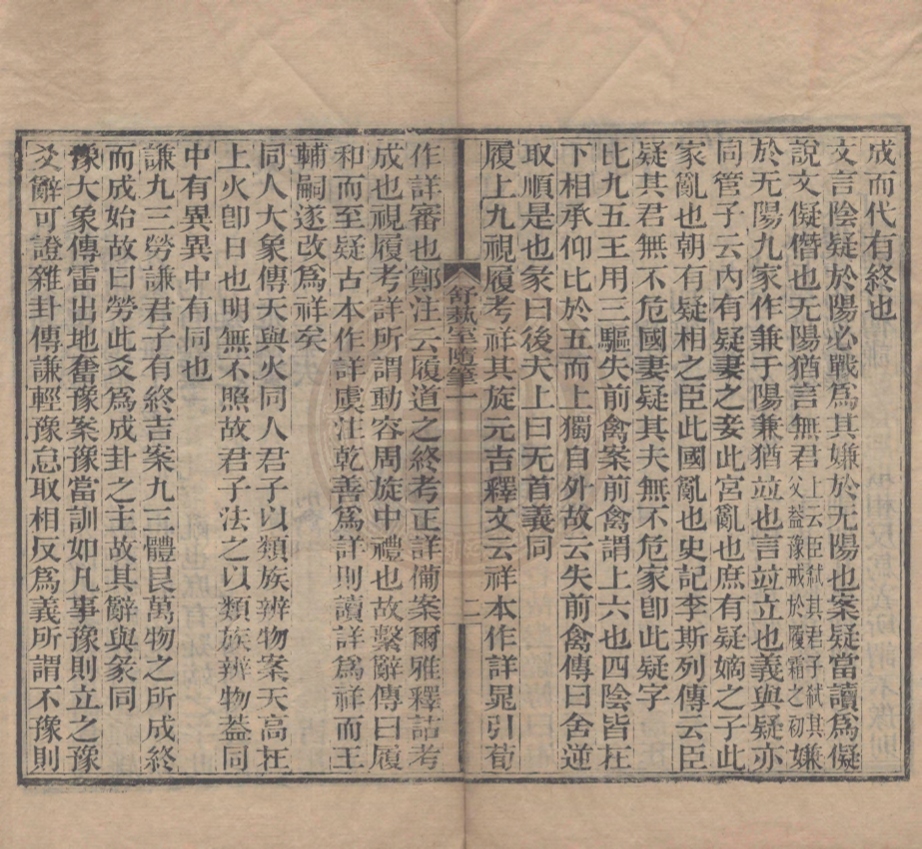 成而代有終也
文言陰疑於陽必戰爲其嫌於无陽也案疑當讀爲儗
說文儗僭也无陽猶言無君上云臣弑其君子弑其父葢豫戒於履霜之初嫌
於无陽九家作兼于陽兼猶竝也言竝立也義與疑亦
同管子云內有疑妻之妾此宮亂也庶有疑嫡之子此
家亂也朝有疑相之臣此國亂也史記李斯列傳云臣
疑其君無不危國妻疑其夫無不危家卽此疑字
比九五王用三驅失前禽案前禽謂上六也四陰皆在
下相承仰比於五而上獨自外故云失前禽傳曰舍逆
取順是也彖曰後夫上曰无首義同
履上九視履考祥其旋元吉釋文云祥本作詳晁引荀
舒藝室隨筆一
二
作詳審也鄭注云履道之終考正詳備案爾雅釋詁考
成也視履考詳所謂動容周旋中禮也故繫辭傳曰履
和而至疑古本作詳虞注乾善爲詳則讀詳爲祥而王
輔嗣遂改爲祥矣
同人大象傳天與火同人君子以類族辨物案天高在
上火卽日也明無不照故君子法之以類族辨物葢同
中有異異中有同也
謙九三勞謙君子有終吉案九三體艮萬物之所成終
而成始故曰勞此爻爲成卦之主故其辭與彖同
豫大象傳雷出地奮豫案豫當訓如凡事豫則立之豫
爻辭可證雜卦傳謙輕豫怠取相反爲義所謂不豫則